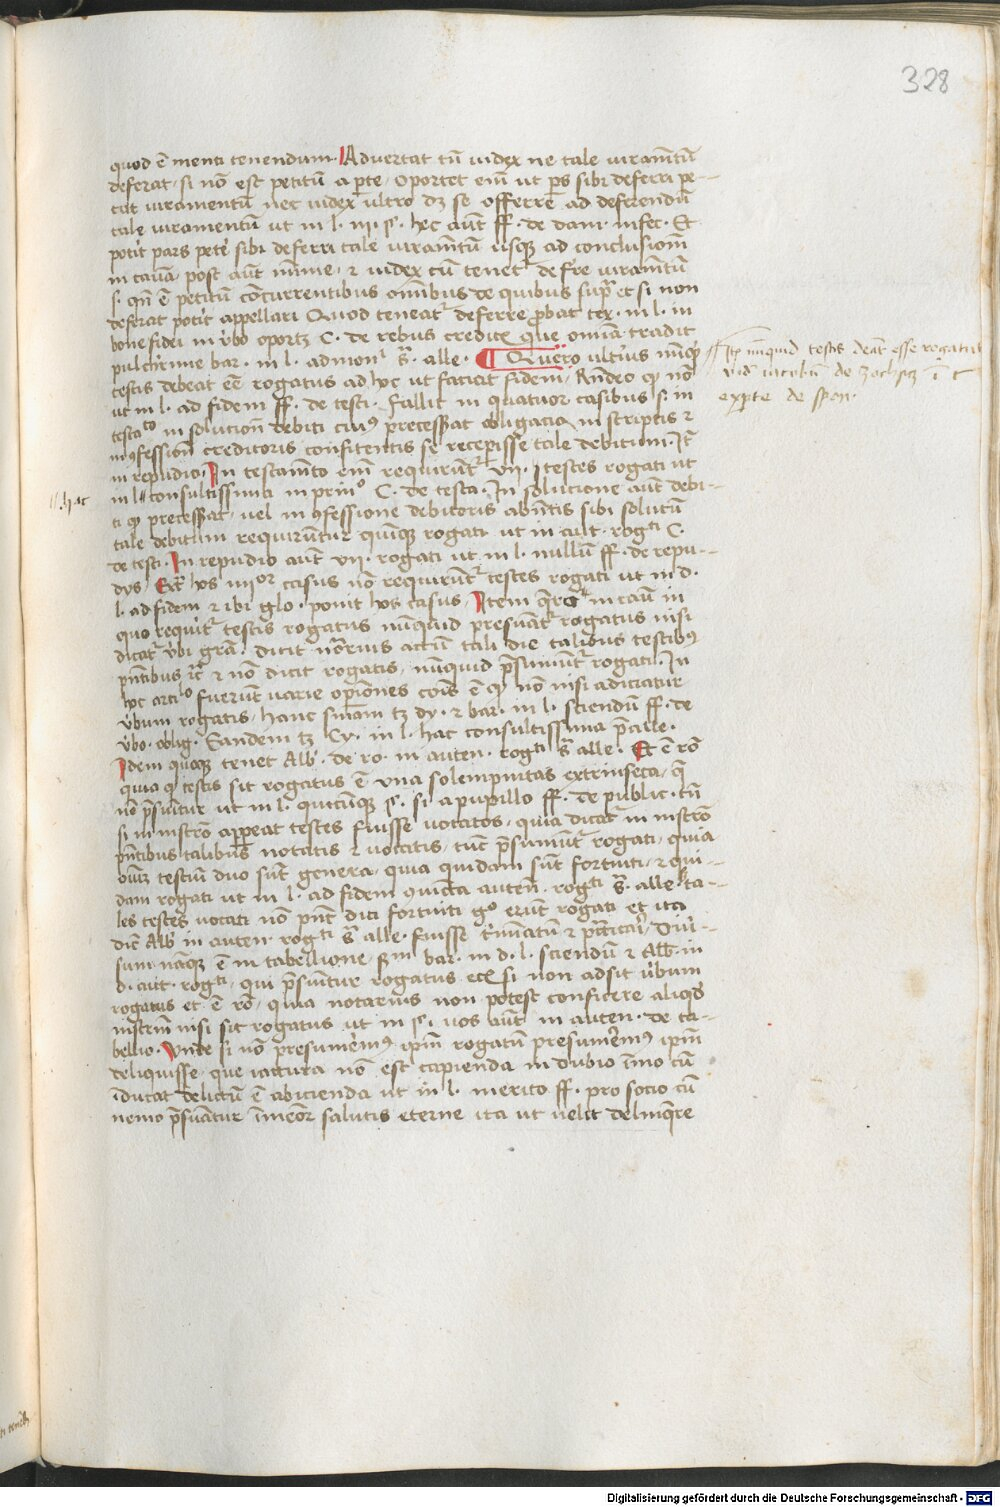 328
quod ē menti tenendum. Advertat tn̄ iudex ne tale iuramētū
deferat, si nō est petitū a parte, oportet em̄ ut ps sibi deferri pe-
tat iuramentū nec iudex ultro dz se offerre ad deferendū
tale iuramentū ut in l. iii. § hec aūt ff. de dam. infec. Et
potit pars petē sibi deferri tale iuramētū usqꝫ ad conclusionē
in causa, post aūt minime, et iudex tūc tenetᷣ defre iuramētū
s. qn̄ ē petitū concurrentibus omībus de quibus supra et si non
deferat potit appellari Quod teneatᷣ deferre probat tex. in l. in
bone fidei in ūbo oportz C. de rebus creditꝭ que omīa tradit
pulchrime bar. in l. admonᵈⁱ sᷓ. alle. ¶ Quero ultius nūqd
testis debeat eē rogatus ad hoc ut faciat fidem, Rn̄deo qꝫ nō
ut in l. ad fidem ff. de testi. Fallit in quatuor casibus s. in
testaᵗᵒ in solutionē debiti cuiꝰ precesserat obligatio in scriptis et
in ꝯfessionē creditoris confitentis se recepisse tale debitum. Itē
in repudio. In testamēto em̄ requirūtᷣ vii. testes rogati ut
in l. consultissima in prinᵒ C. de testa. In solucione aūt debi-
ti qꝫ precesserat, vel in ꝯfessione debitoris abn̄tis sibi solutū
tale debitum requirūtur quinqꝫ rogati ut in aut. rogᵗⁱ C.
de testi. In repudio aūt vii. rogati ut in l. nullū ff. de repu-
dys, Extᷓ hos iiiiᵒʳ casus nō requirūtᷣ testes rogati ut in d.
l. ad fidem et ibi glo. ponit hos casus, Item q̄ro in casu in
quo requirᷣ testis rogatus nūquid presumatᷣ rogatus nisi
dicatᷣ ūbi grā. dicit notarius actum tali die talibus testibꝰ
pn̄tibus ꝛc̄ et nō dicit rogatis, nūmquid presumūtᷣ rogati. In
hoc artiᵒ fuerūt varie opiniones cōis ē qꝫ nō nisi adiciatur
ūbum rogatis, hanc sniam tz dy. et bar. in l. sciendū ff. de
ūbo. oblig. Eandem tz Cy. in l. hac consultissima prealle.
Idem quoqꝫ tenet Alb. de ro. in auten. rogᵗⁱ sᷓ alle. Et ē rō
quia qꝫ testis sit rogatus ē una solempnitas extrinseca, q̄
nō presumitur ut in l. quicunqꝫ § si a pupillo ff. de public. tn̄
si in instrō appeat testes fuisse vocatos, quia dicatᷣ in instrō
pn̄tibus talibus notatis et vocatis, tūc presumūtᷣ rogati, quia
cum testiū duo sūt genera, quia quidam sūt fortuiti, et qui-
dam rogati ut in l. ad fidem ꝯiucta auten. rogᵗⁱ sᷓ. alle. ta-
les testes vocati nō pn̄t dici fortuiti gᵒ erūt rogati et ita
dic̄ Alb in auten. rogᵗⁱ sᷓ alle. fuisse tīnatū et practicari, Diū-
sum namqꝫ ē in tabellione sm̄ bar. in d. l. sciendū et Alb. in
d. aut. rogᵗⁱ, qui presumitur rogatus eciā si non adsit ūbum
rogatus et ē rō, quia notarius non potest conficere aliqd
instrm̄ nisi sit rogatus ut in § i. nos aūt in auten. de ta-
bellio. Unde si nō presumēemꝰ ipm̄ rogatū presumēemꝰ ipm̄
deliquisse, que iactura nō est capienda in dubio īmo cū
īducat delictū ē abicienda ut in l. merito ff. pro socio cū
nemo presumatur īmeōr salutis eterne ita ut velit delinq̄re
Itē nūnquid testis debeāt esse rogati
vid iacobū de Zochis ī c
exparte de spon.
hac